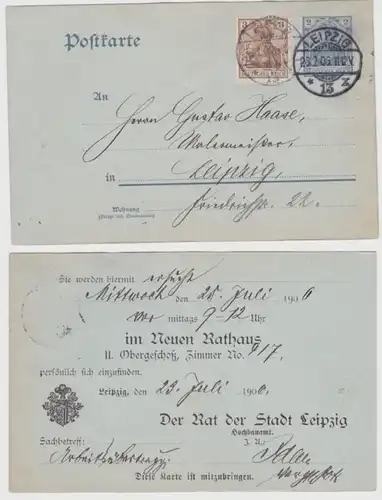 Postkarte
3
2
DEUTSCHES REICH
LEIPZIG
13
An
Herrn Gustav Haase,
Malermeister,
in Leipzig,
Wohnung
Friedrichstr. 22.
Sie werden hiermit ersucht
Mittwoch den 25. Juli 1906
vor mittags 9-12 Uhr
im Neuen Rathaus
II. Obergeschoß, Zimmer No. 417,
persönlich sich einzufinden.
Leipzig, den 23. Juli 1906.
Der Rat der Stadt Leipzig
Hochbauamt.
Sachbetreff:
J. A.:
Diese Karte ist mitzubringen.